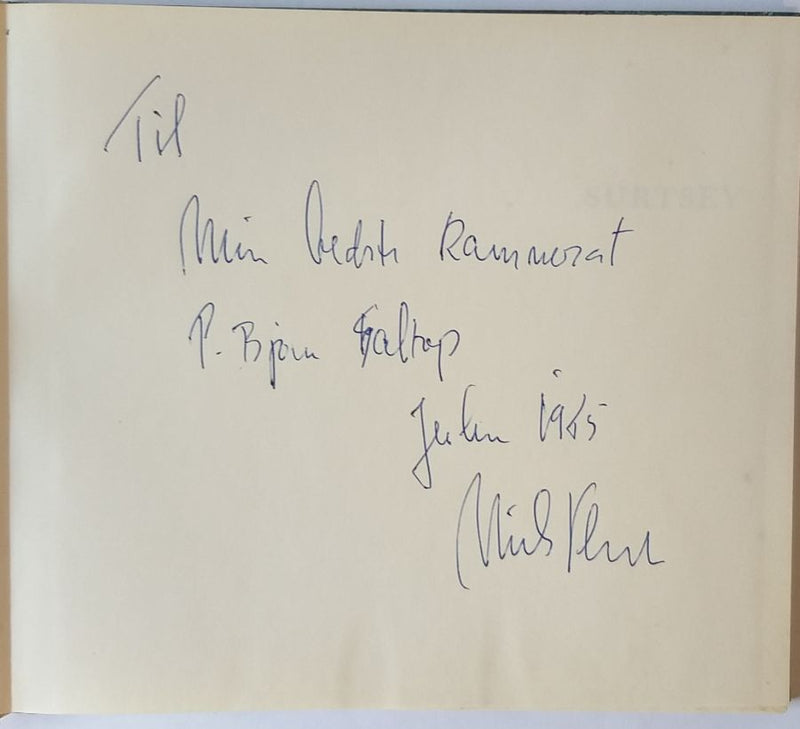 SURTSEY
Til
Min bedste Kammerat
P. Bjørn
Julen 1965
Niels